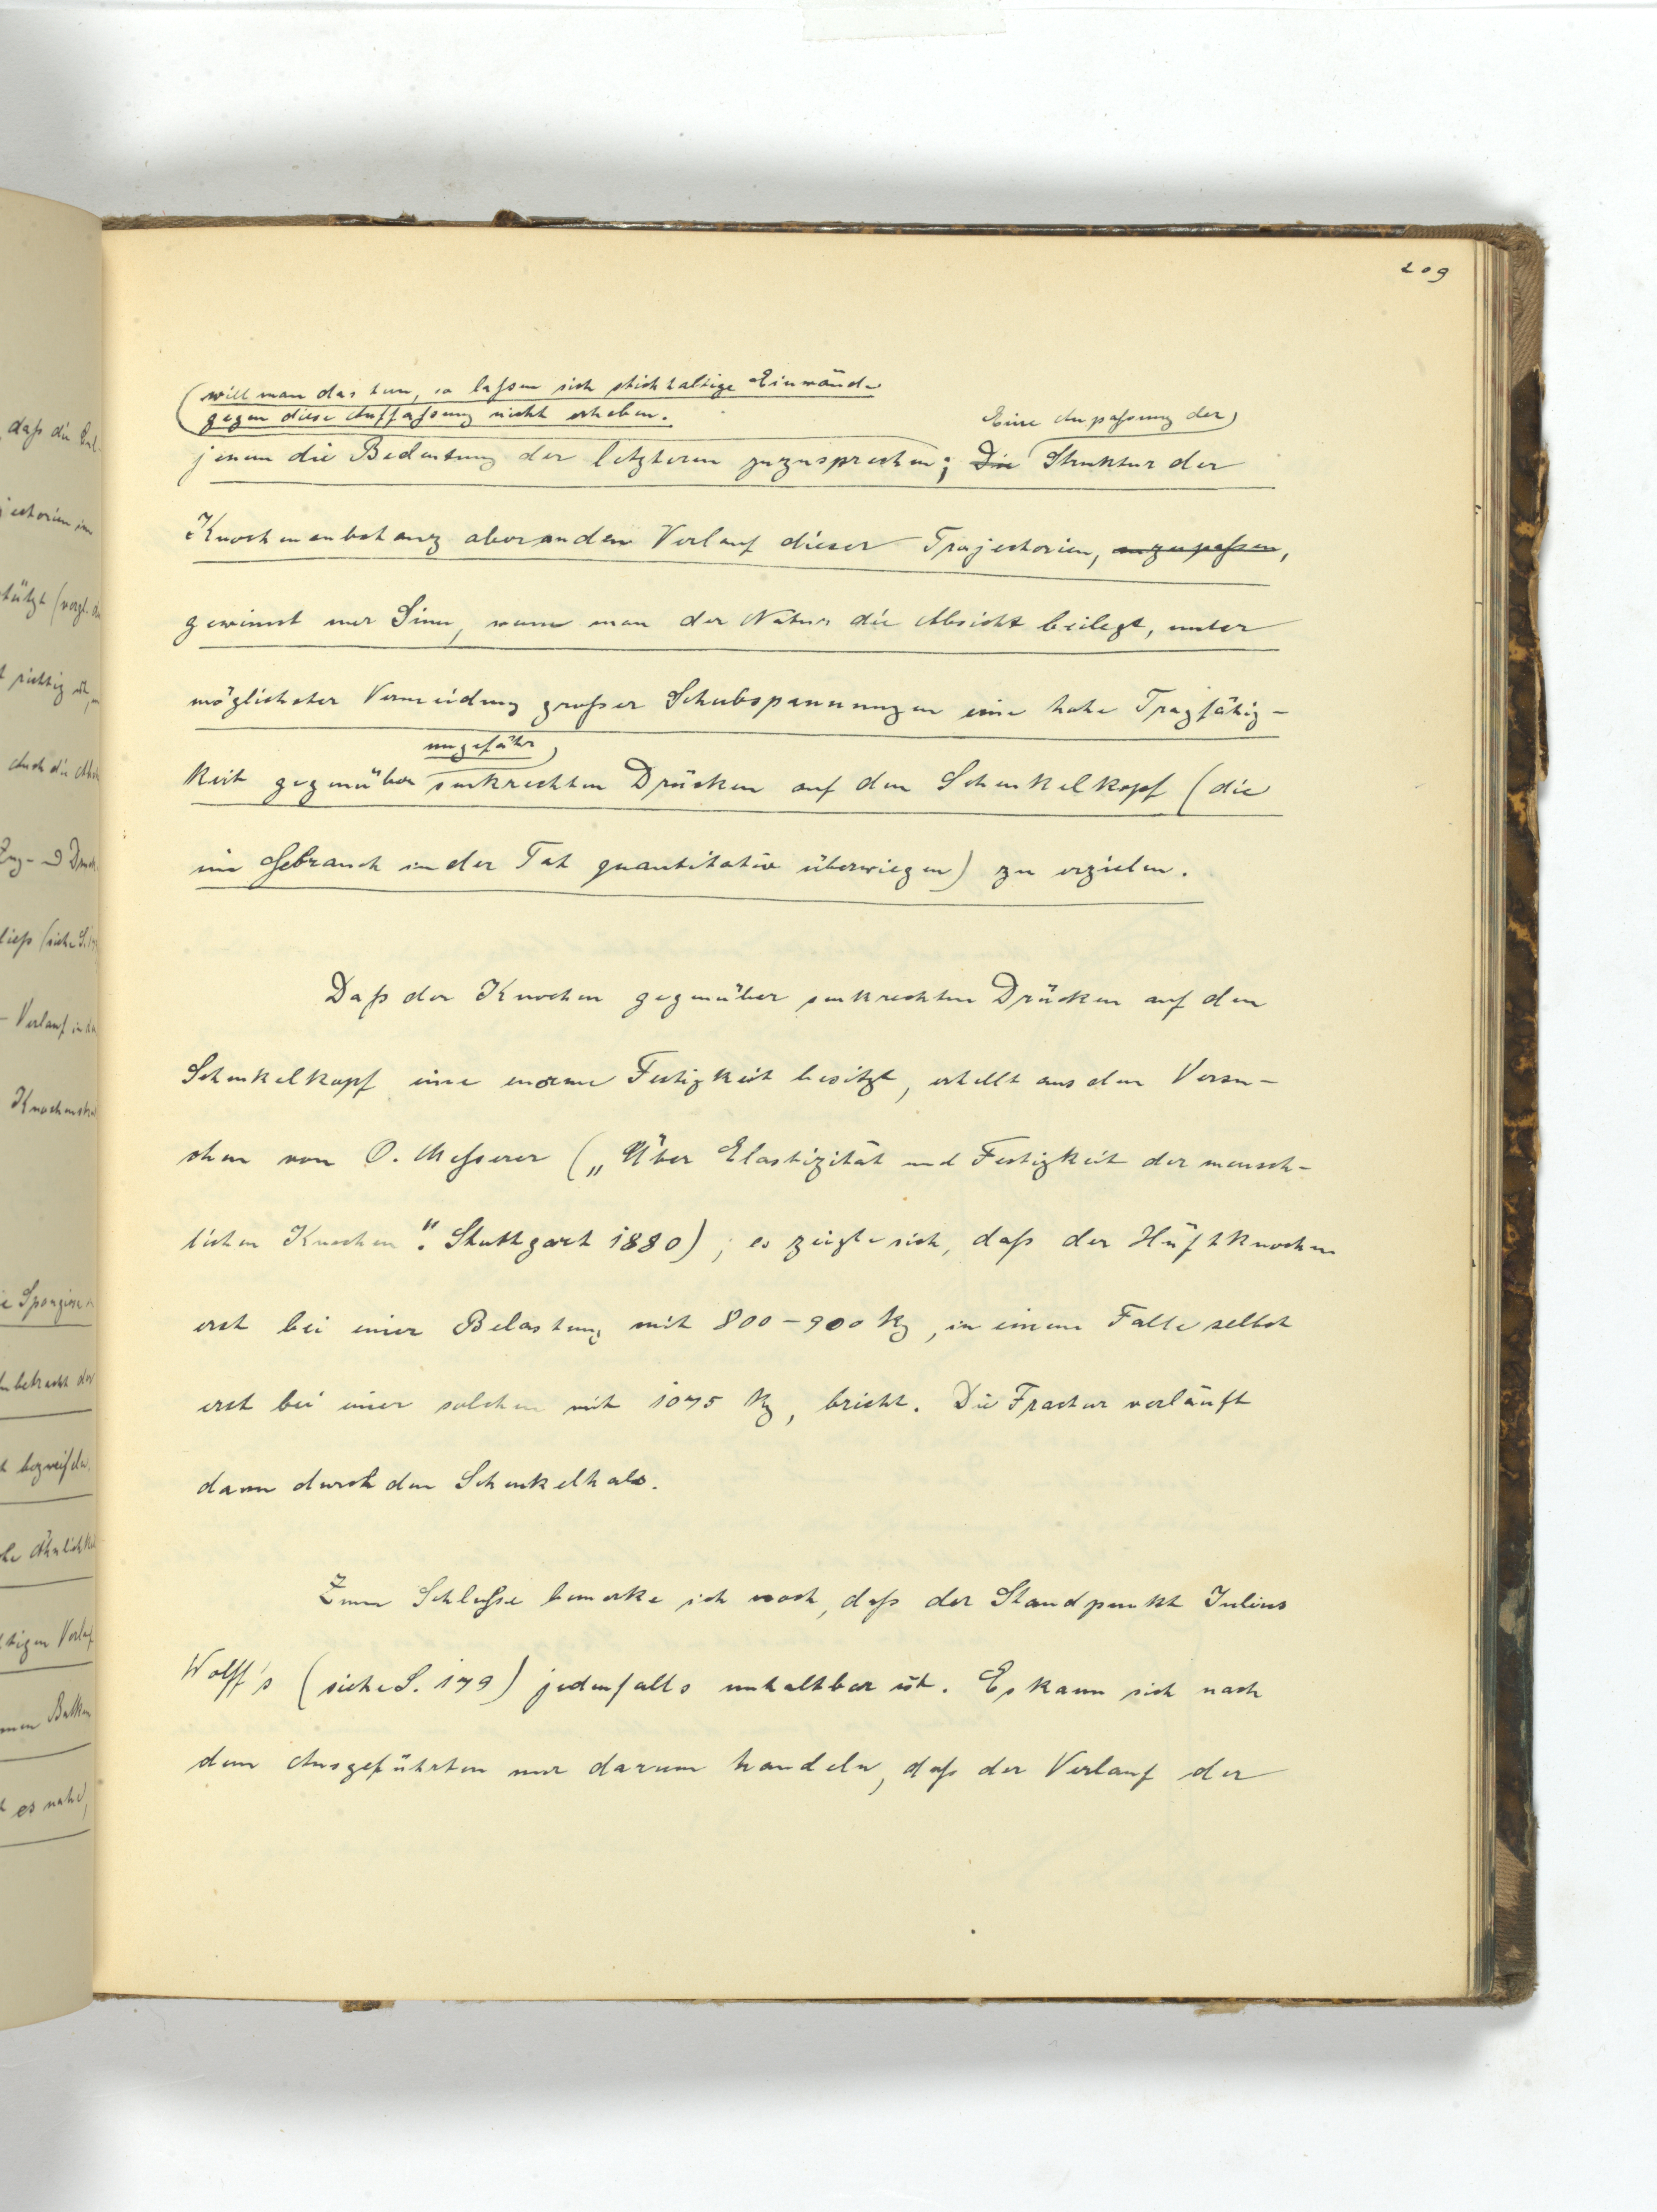 209
will man das tun, so laſsen sich stichhaltige Einwände
gegen diese Auffaſsung nicht erheben.
Eine Anpaſsung der
jenen die Bedeutung der letzteren zuzusprechen; Die Struktur der
Knochensubstanz aber an den Verlauf dieser Trajectorien, anzupaſsen,
gewinnt nur Sinn, wenn man der Natur die Absicht beilegt, unter
möglichster Vermeidung großer Schubspannungen eine hohe Tragfähig-
ungefähr
keit gegenüber senkrechten Drücken auf den Schenkelkopf (die
im Gebrauch in der Tat quantitativ überwiegen) zu erzielen.
Daß der Knochen gegenüber senkrechten Drücken auf den
Schenkelkopf eine enorme Festigkeit besitzt, erhellt aus den Versu-
chen von O. Meſserer („Über Elastizität und Festigkeit der mensch-
lichen Knochen". Stuttgart 1880); es zeigte sich, daß der Hüftknochen
erst bei einer Belastung mit 800-900 kg, in einem Falle selbst
erst bei einer solchen mit 1075 kg, bricht. Die Fractur verläuft
dann durch den Schenkelhals.
Zum Schluſse bemerke ich noch, daß der Standpunkt Julius
Wolff's (siehe S. 179) jedenfalls unhaltbar ist. Es kann sich nach
dem Ausgeführten nur darum handeln, daß der Verlauf der